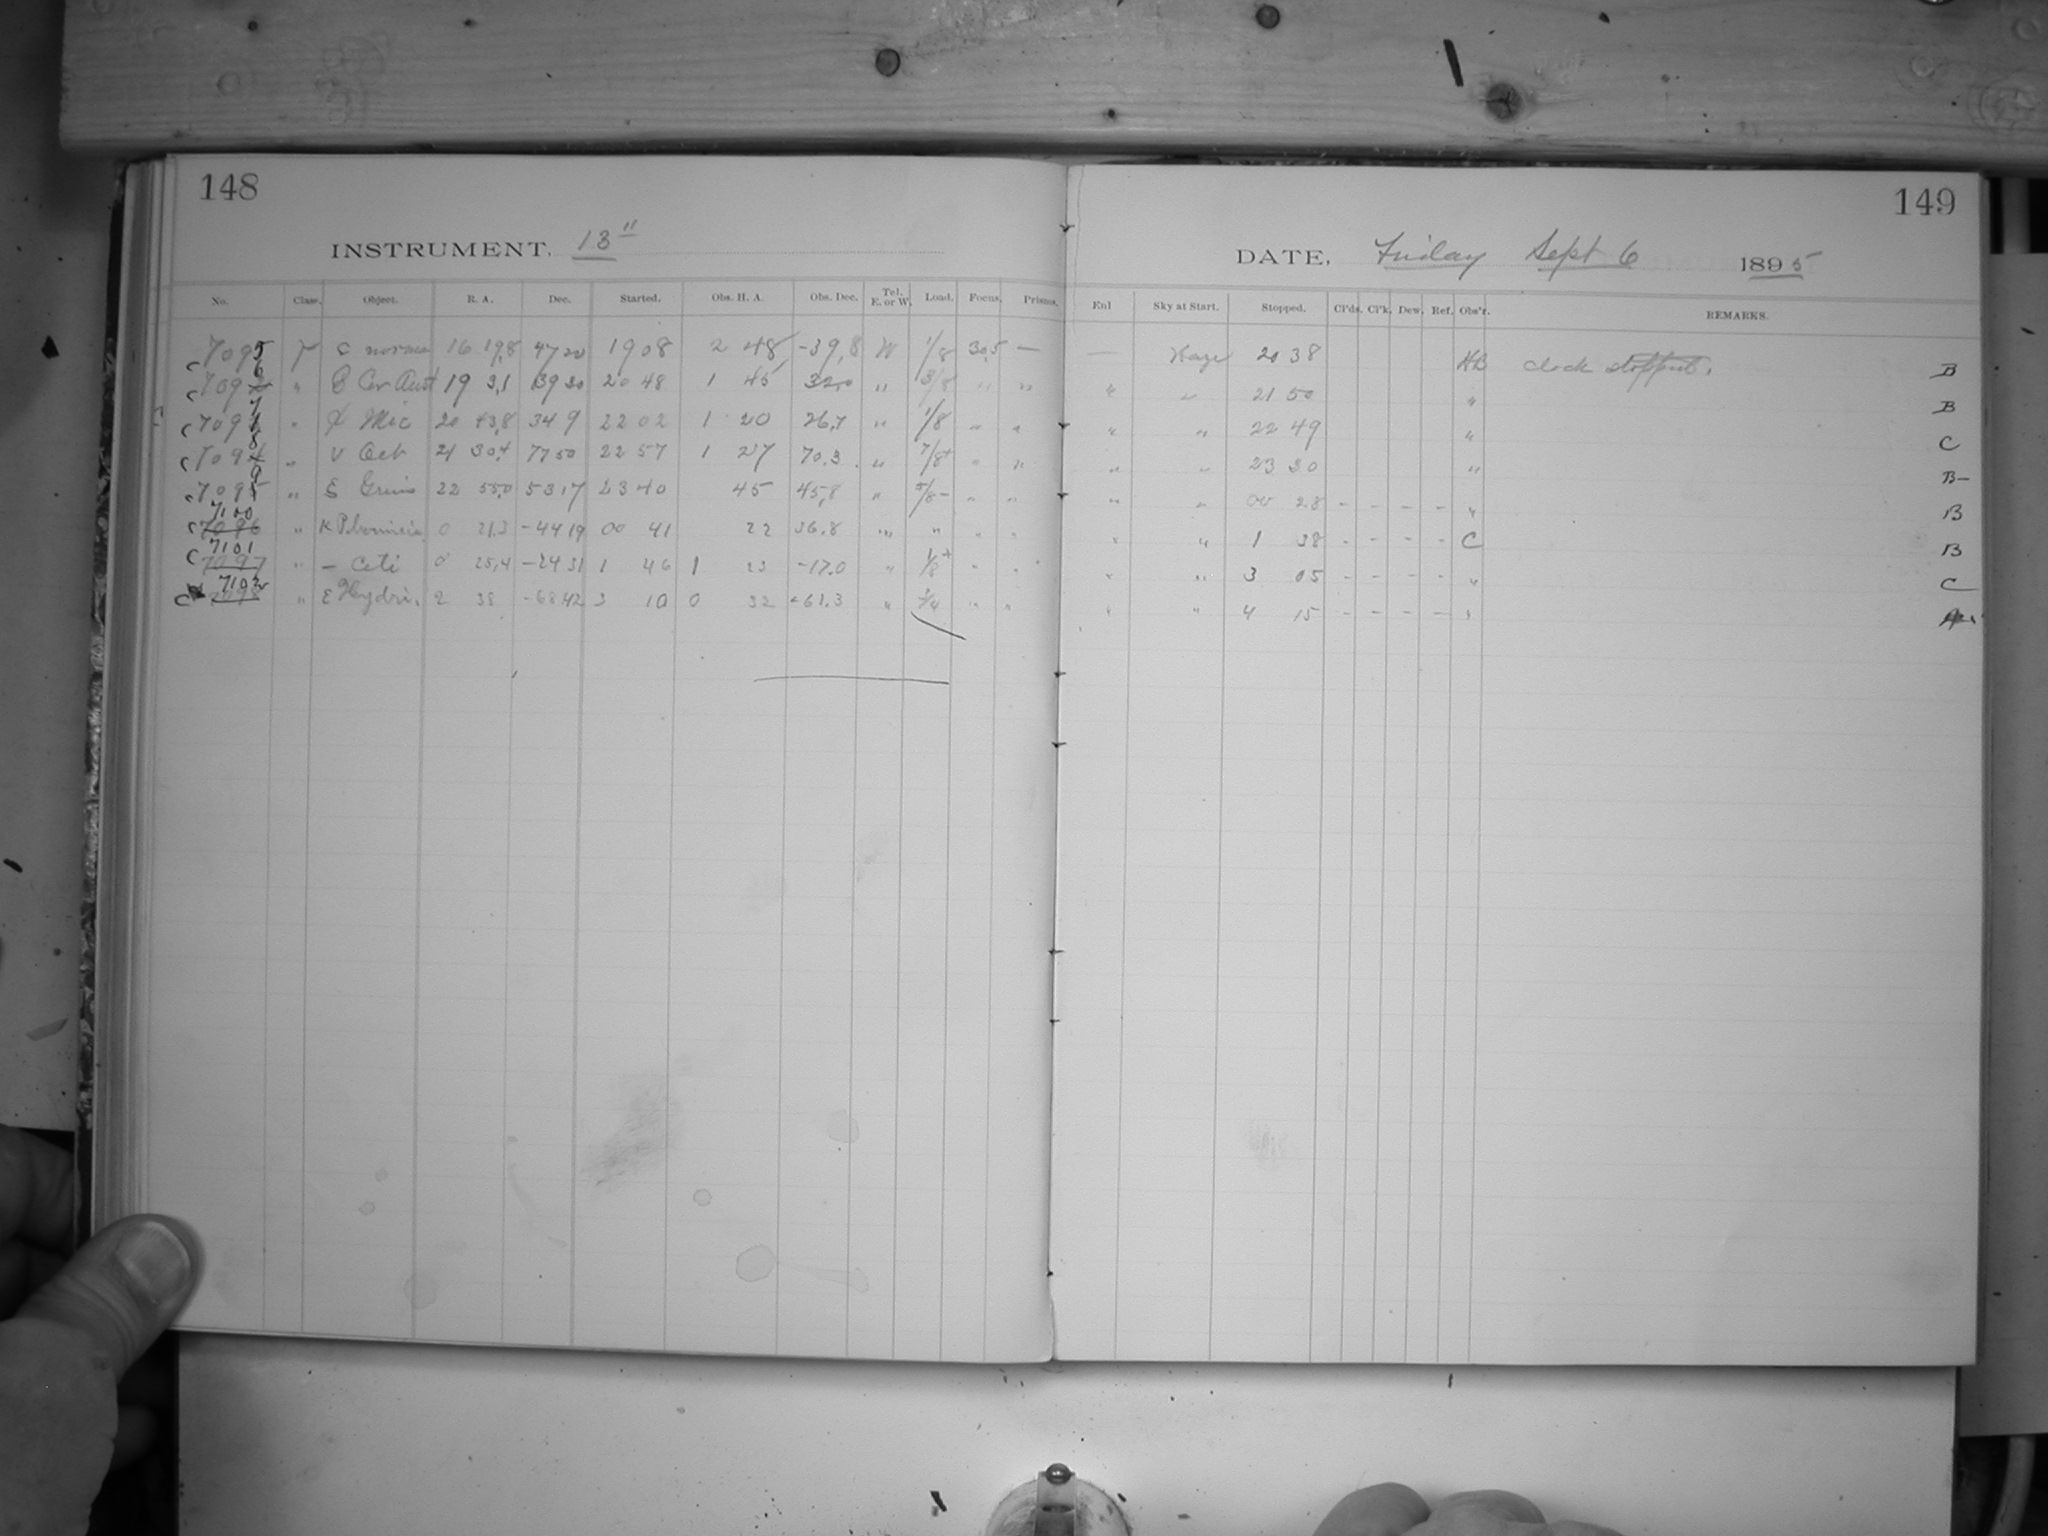 148
INSTRUMENT. 13"
No. Class. Object. R. A. Dec. Started. Obs. H. A. Obs. Dec. Tel. E. or W. Load. Focus. Prisms.
c 7095 T c norma 16 19,8 47 20 19 08 2 48 -39,8 W 1/8 30,5 —
c 7096 " Cor Aust 19 3,1 39 30 20 48 1 45 32,0 " 3/8 " "
c 7097 " Mic 20 43,8 34 9 22 02 1 20 26,7 " 1/8 " "
c 7098 " ν Oct 21 30,4 77 50 22 57 1 27 70.3 " 7/8+ " "
c 7099 " Gruis 22 55,0 53 17 23 40 45 45,8 " 5/8- " "
c 7100 7096 " K Phoenicis 0 21.3 -44 19 00 41 22 36.8 " " " "
c 7101 7097 " - Ceti 0 25,4 -24 31 1 46 1 23 -17.0 " 1/8+ " "
c 7102 7098 " ε Hydri. 2 38 -68 42 3 10 0 32 -61.3 " " "
149
DATE, Friday Sept 6 1895
Enl Sky at Start. Stopped. Cl'ds. Cl'k. Dew. Ref. Obs'r. REMARKS.
— Haze 20 38 HB clock stopped. B
" " 21 50 " B
" " 22 49 " C
" " 23 30 " B-
" " 00 28 - - - - " B
" " 1 38 - - - - C B
" " 3 05 - - - - " C
" " 4 15 - - - - "